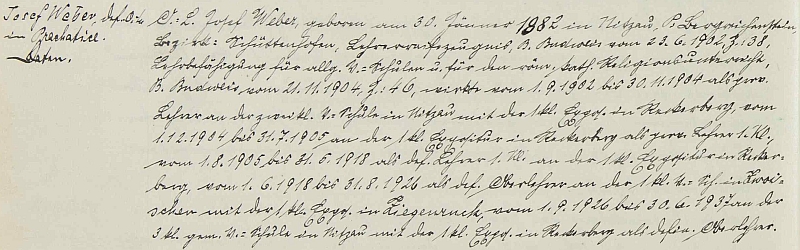 Josef Weber, def. O.-L.
in Prachatitz.
Daten.
O.-L. Josef Weber, geboren am 30. Jänner 1882 in Nitzau, P. Bergreichenstein,
Bezirk: Schüttenhofen, Lehrerreifezeugnis, B. Budweis vom 23.6.1902, Z. 38,
Lehrbefähigung für allg. V.-Schulen u. für den röm. kath. Religionsunterricht,
B. Budweis, vom 21.11.1904, Z.: 46, wirkte vom 1.9.1902 bis 30.11.1904 als prov.
Lehrer an der zweikl. V.-Schule in Nitzau mit der 1 kl. Expos. in Reckerberg, vom
1.12.1904 bis 31.7.1905 an der 1 kl. Expositur in Reckerberg als prov. Lehrer 1. Kl.,
vom 1.8.1905 bis 31.5.1918 als def. Lehrer 1. Kl. an der 1 kl. Expositur in Recker-
berg, vom 1.6.1918 bis 31.8.1926 als def. Oberlehrer an der 1 kl. V.-Sch. in
schen mit der 1 kl. Expos. in Ziegenruck, vom 1.9.1926 bis 30.6.1937 an der
3 kl. gem. V.-Schule in Nitzau mit der 1 kl. Expos. in Reckerberg als defin. Oberlehrer.